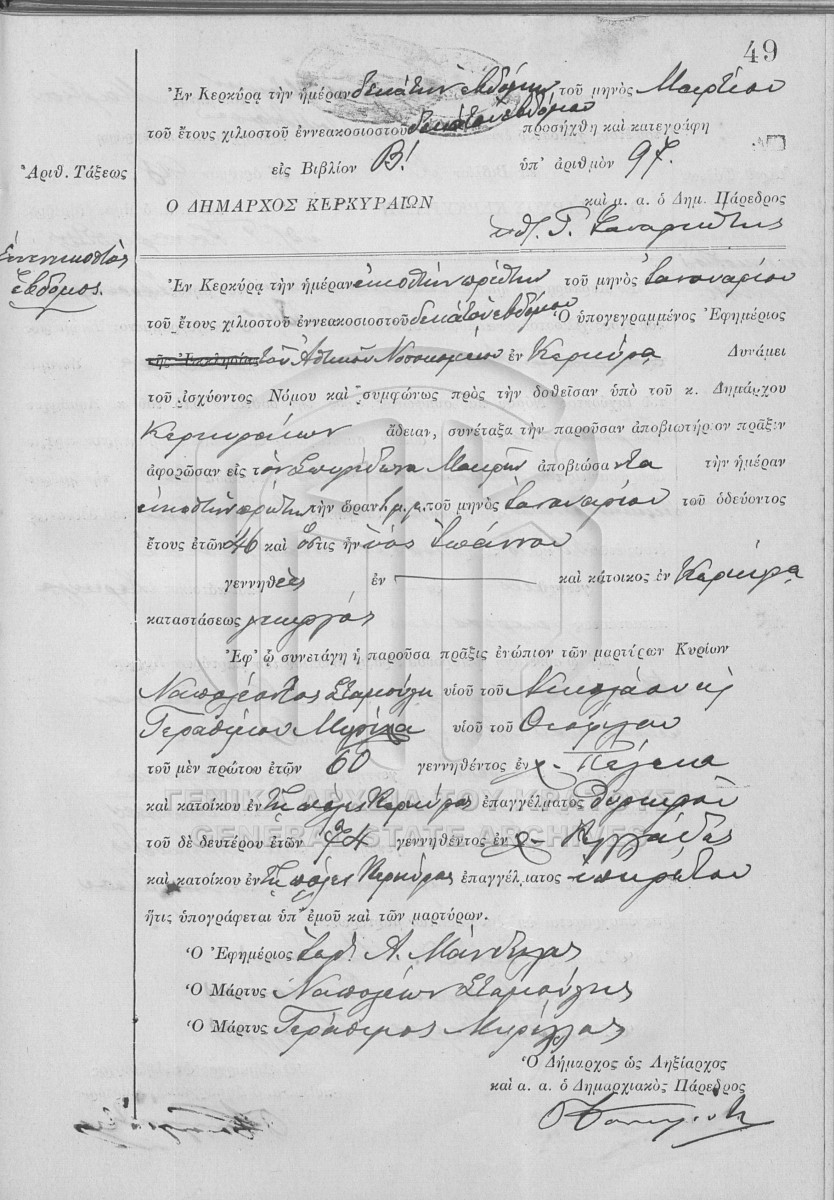 49
Ἐν Κερκύρᾳ τὴν ἡμέραν δεκάτην ἑβδόμην τοῦ μηνὸς Μαρτίου
τοῦ ἔτους χιλιοστοῦ ἐννεακοσιοστοῦ δεκάτου ἑβδόμου προσήχθη καὶ κατεγράφη
Ἀριθ. Τάξεως
εἰς Βιβλίον Β! ὑπ' ἀριθμὸν 97.
Ο ΔΗΜΑΡΧΟΣ ΚΕΡΚΥΡΑΙΩΝ καὶ μ. α. ὁ Δημ. Πάρεδρος
Γ.
Ἐννενηκοστὸς
ἕβδομος.
Ἐν Κερκύρᾳ τὴν ἡμέραν εἰκοστὴν πρώτην τοῦ μηνὸς Ἰανουαρίου
τοῦ ἔτους χιλιοστοῦ ἐννεακοσιοστοῦ δεκάτου ἑβδόμου Ὁ ὑπογεγραμμένος Ἐφημέριος
τῆς Ἐκκλησίας τοῦ Ἀστικοῦ Νοσοκομείου ἐν Κερκύρᾳ Δυνάμει
τοῦ ἰσχύοντος Νόμου καὶ συμφώνως πρὸς τὴν δοθεῖσαν ὑπὸ τοῦ κ. Δημάρχου
Κερκυραίων ἄδειαν, συνέταξα τὴν παροῦσαν ἀποβιωτήριον πρᾶξιν
ἀφορῶσαν εἰς τὸν Σπυρίδωνα Μακρῆν ἀποβιώσαντα τὴν ἡμέραν
εἰκοστὴν πρώτην τὴν ὥραν μ.μ. τοῦ μηνὸς Ἰανουαρίου τοῦ ὁδεύοντος
ἔτους ἐτῶν 46 καὶ ὅστις ἦν υἱὸς Ἰωάννου
γεννηθεὶς ἐν — καὶ κάτοικος ἐν Κερκύρᾳ
καταστάσεως γεωργὸς
Ἐφ' ᾧ συνετάγη ἡ παροῦσα πρᾶξις ἐνώπιον τῶν μαρτύρων Κυρίων
Ναπολέοντος Σταμούλη υἱοῦ τοῦ Νικολάου κὶ
Γερασίμου υἱοῦ τοῦ
τοῦ μὲν πρώτου ἐτῶν 60 γεννηθέντος ἐν χ. Πέλεκα
καὶ κατοίκου ἐν τῇ πόλει Κερκύρας ἐπαγγέλματος θυρωροῦ
ΓΕΝΙΚΑ ΑΡΧΕΙΑ ΤΟΥ ΚΡΑΤΟΥΣ
GENERAL STATE ARCHIVES
τοῦ δὲ δευτέρου ἐτῶν 34 γεννηθέντος ἐν χ.
καὶ κατοίκου ἐν τῇ πόλει Κερκύρας ἐπαγγέλματος ὑπηρέτου
ἥτις ὑπογράφεται ὑπ' ἐμοῦ καὶ τῶν μαρτύρων.
Ὁ Ἐφημέριος Α.
Ὁ Μάρτυς Ναπολέων Σταμούλης
Ὁ Μάρτυς Γεράσιμος
Ὁ Δήμαρχος ὡς Ληξίαρχος
καὶ α. α. ὁ Δημαρχιακὸς Πάρεδρος